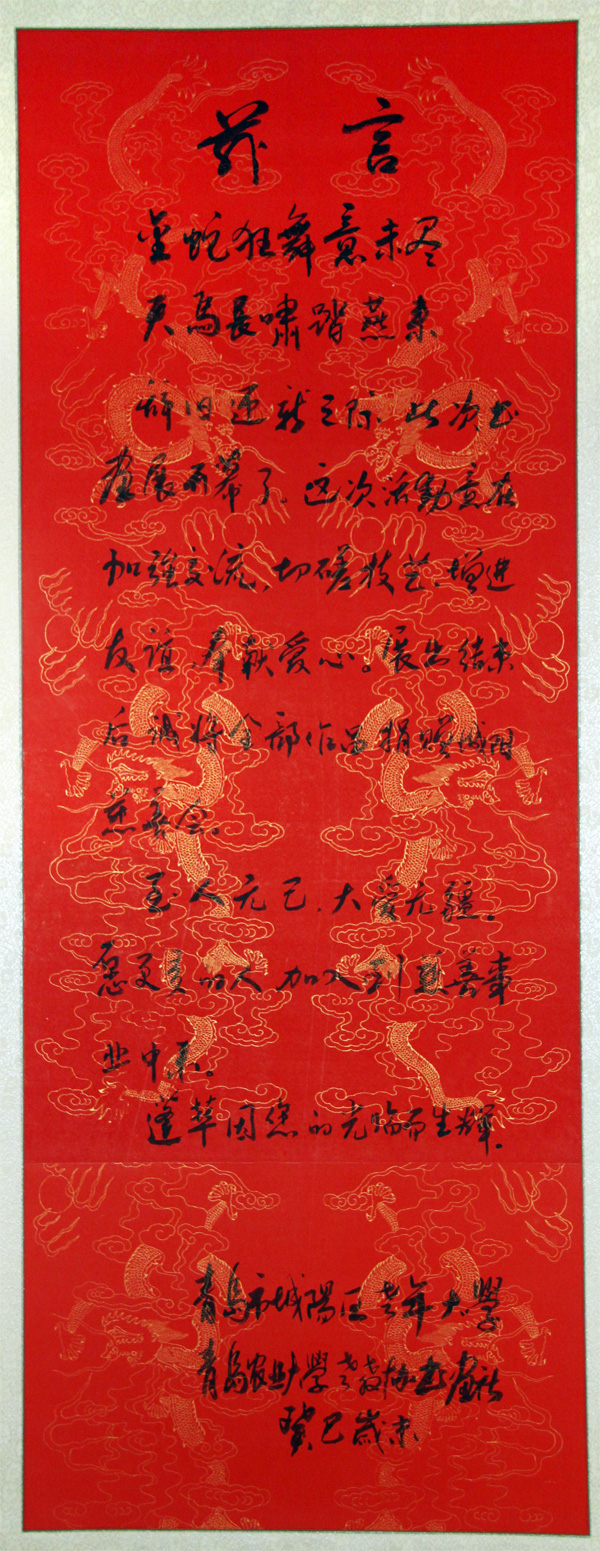 前言
金蛇狂舞意未尽
天马长啸踏燕来
辞旧迎新之际，此次书
画展开幕了。这次活动意在
加强交流、切磋技艺、增进
友谊、奉献爱心。展出结束
后诚将全部作品捐赠城阳
慈善会。
至人无己，大爱无疆。
愿更多的人加入到慈善事
业中来。
蓬荜因您的光临而生辉。
青岛市城阳区老年大学
青岛农业大学老教协书画社
癸巳岁末